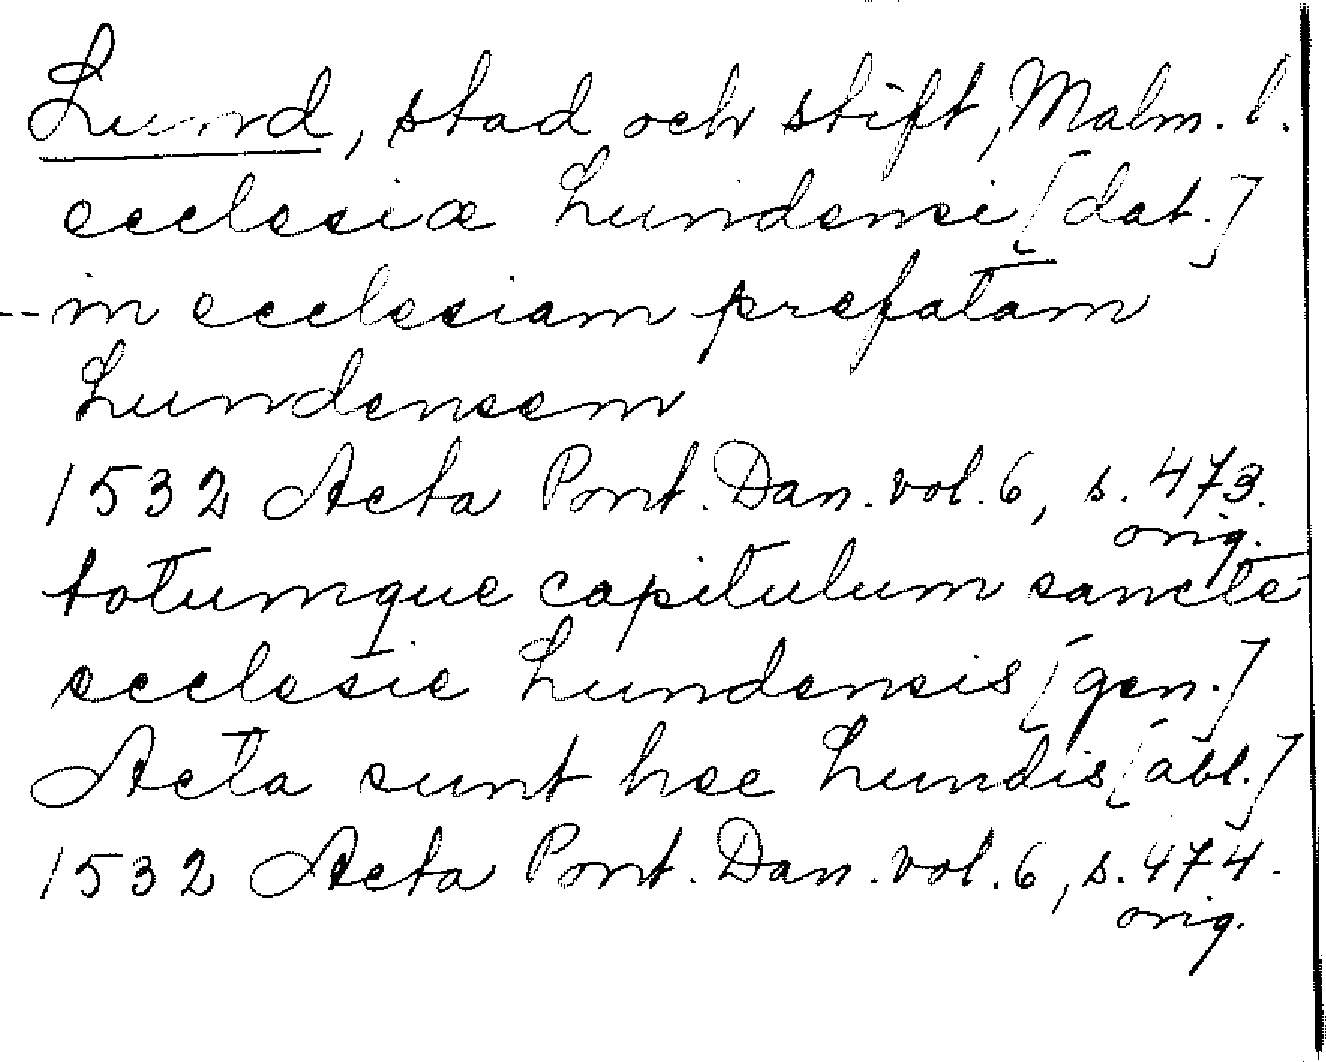 Lund, stad och stift, Malm. l.
ecclesiæ Lundensi [dat.]
-- in ecclesiam prefatam
Lundensem
1532 Acta Pont. Dan. vol. 6, s. 473.
orig.
totumque capitulum sancte
ecclesie Lundensis [gen.]
Acta sunt hec Lundis [abl.]
1532 Acta Pont. Dan. vol. 6, s. 474.
orig.